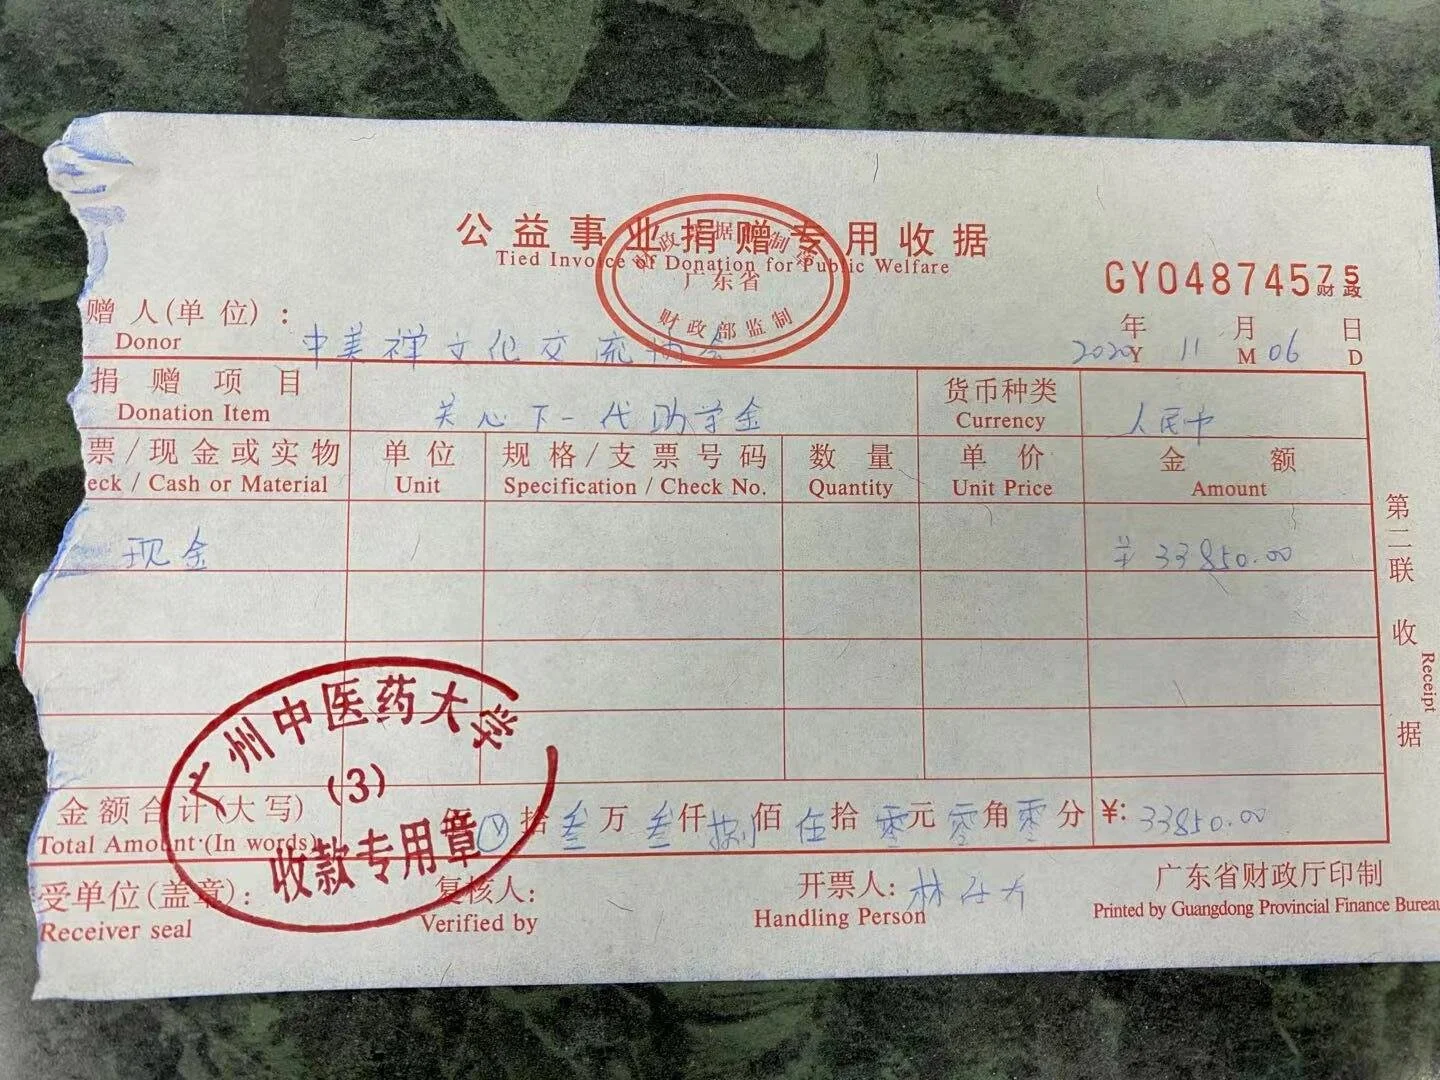 公益事业捐赠专用收据
Tied Invoice of Donation for Public Welfare
财政票据监制章
广东省
财政部监制
GY04874575
财政
赠人(单位): 中美禅文化交流协会
Donor
年 月 日
2020 Y 11 M 06 D
捐赠项目 关心下一代助学金 货币种类 人民币
Donation Item Currency
票/现金或实物 单位 规格/支票号码 数量 单价 金额
eck / Cash or Material Unit Specification / Check No. Quantity Unit Price Amount
现金 ¥33850.00
第二联 收据
Receipt
金额合计(大写) 佰 拾 叁万 叁仟 捌佰 伍拾 零元 零角 零分 ¥: 33850.00
Total Amount (In words)
广州中医药大学
(3)
收款专用章
受单位(盖章): 复核人: 开票人: 林 广东省财政厅印制
Receiver seal Verified by Handling Person Printed by Guangdong Provincial Finance Bureau